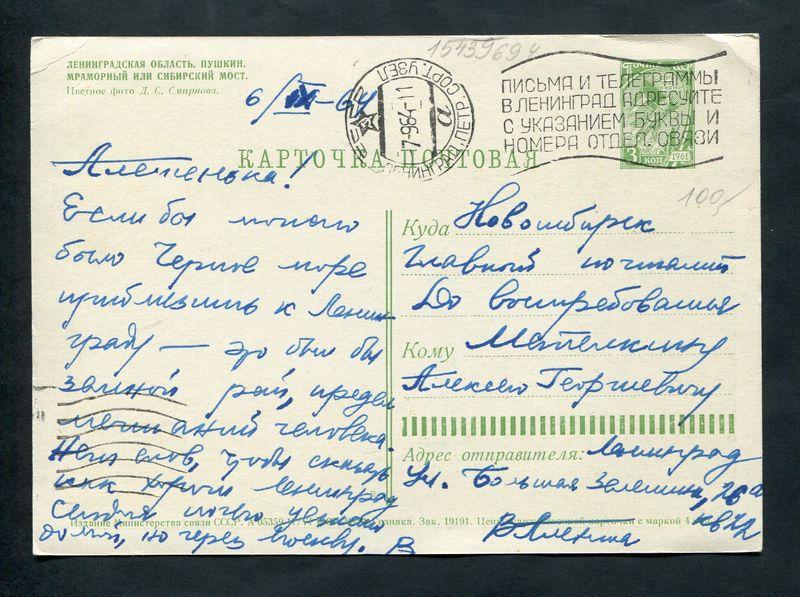 ЛЕНИНГРАДСКАЯ ОБЛАСТЬ. ПУШКИН.
МРАМОРНЫЙ ИЛИ СИБИРСКИЙ МОСТ.
Цветное фото Д. С. Смирнова.
6/IX-64
ЛЕНИНГРАД, ПЕТР. СОРТ. УЗЕЛ
-7-964-11
ПИСЬМА И ТЕЛЕГРАММЫ
В ЛЕНИНГРАД АДРЕСУЙТЕ
С УКАЗАНИЕМ БУКВЫ И
НОМЕРА ОТДЕЛ. СВЯЗИ
ПОЧТА СССР
3 КОП
1961
КАРТОЧКА ПОЧТОВАЯ
100/
Алешенька!
Если бы можно
было Черное море
приблизить к Ленин-
граду — это был бы
земной рай, предел
мечтаний человека.
Нет слов, чтобы сказать
как хорош Ленинград
Сегодня ночью уезжаю
домой, но через Москву. В
Куда Новосибирск
Главный почтамт
До востребования
Кому Метелкину
Алексею Георгиевичу
Адрес отправителя: Ленинград
Ул. Большая Зеленина, 26а
кв 22
Издание Министерства связи СССР. А 05359
Зак. 19191.
с маркой 4